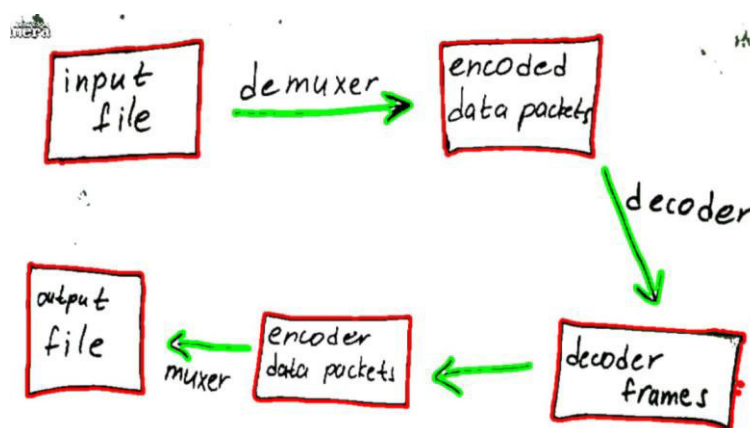 input
file
demuxer
encoded
data packets
decoder
decoder
frames
encoder
data packets
muxer
output
file